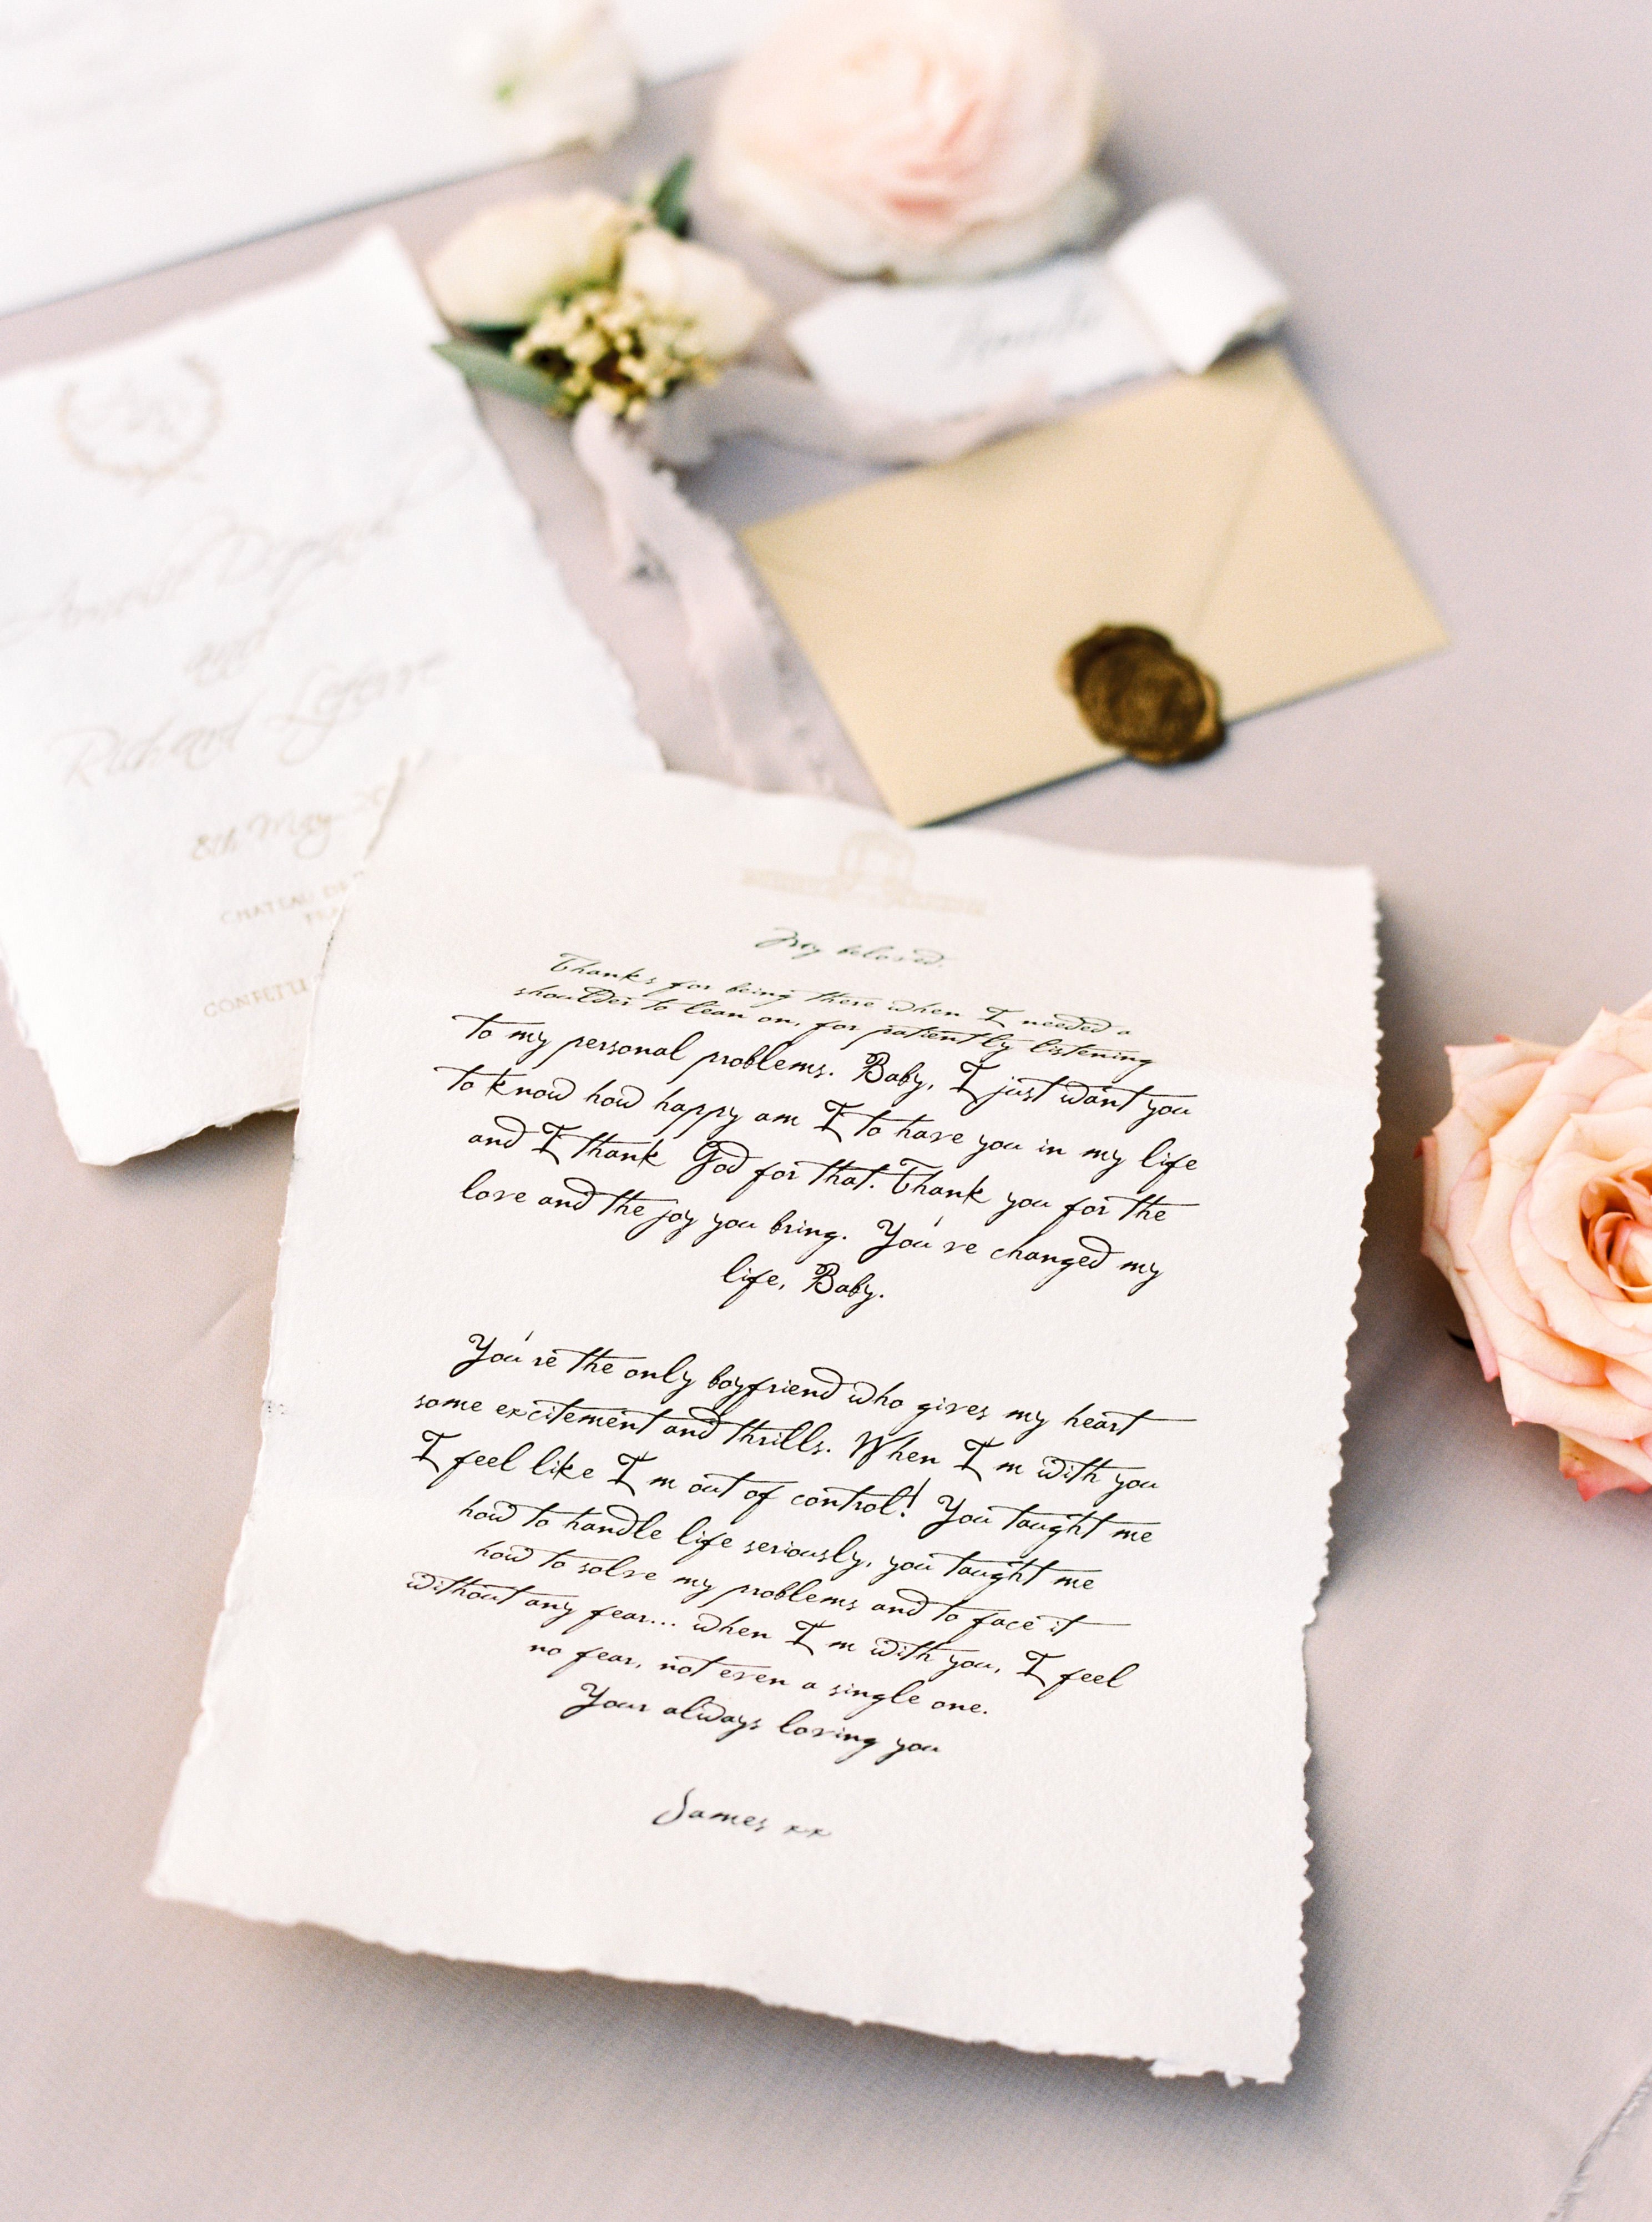 and
Richard Lefevre
8th May 20
CHATEAU DE
My beloved,
Thanks for being there when I needed a
shoulder to lean on, for patiently listening
to my personal problems. Baby, I just want you
to know how happy am I to have you in my life
and I thank God for that. Thank you for the
love and the joy you bring. You've changed my
life, Baby.
You're the only boyfriend who gives my heart
some excitement and thrills. When I m with you
I feel like I m out of control! You taught me
how to handle life seriously, you taught me
how to solve my problems and to face it
without any fear... when I m with you, I feel
no fear, not even a single one.
Your always loving you
James xx